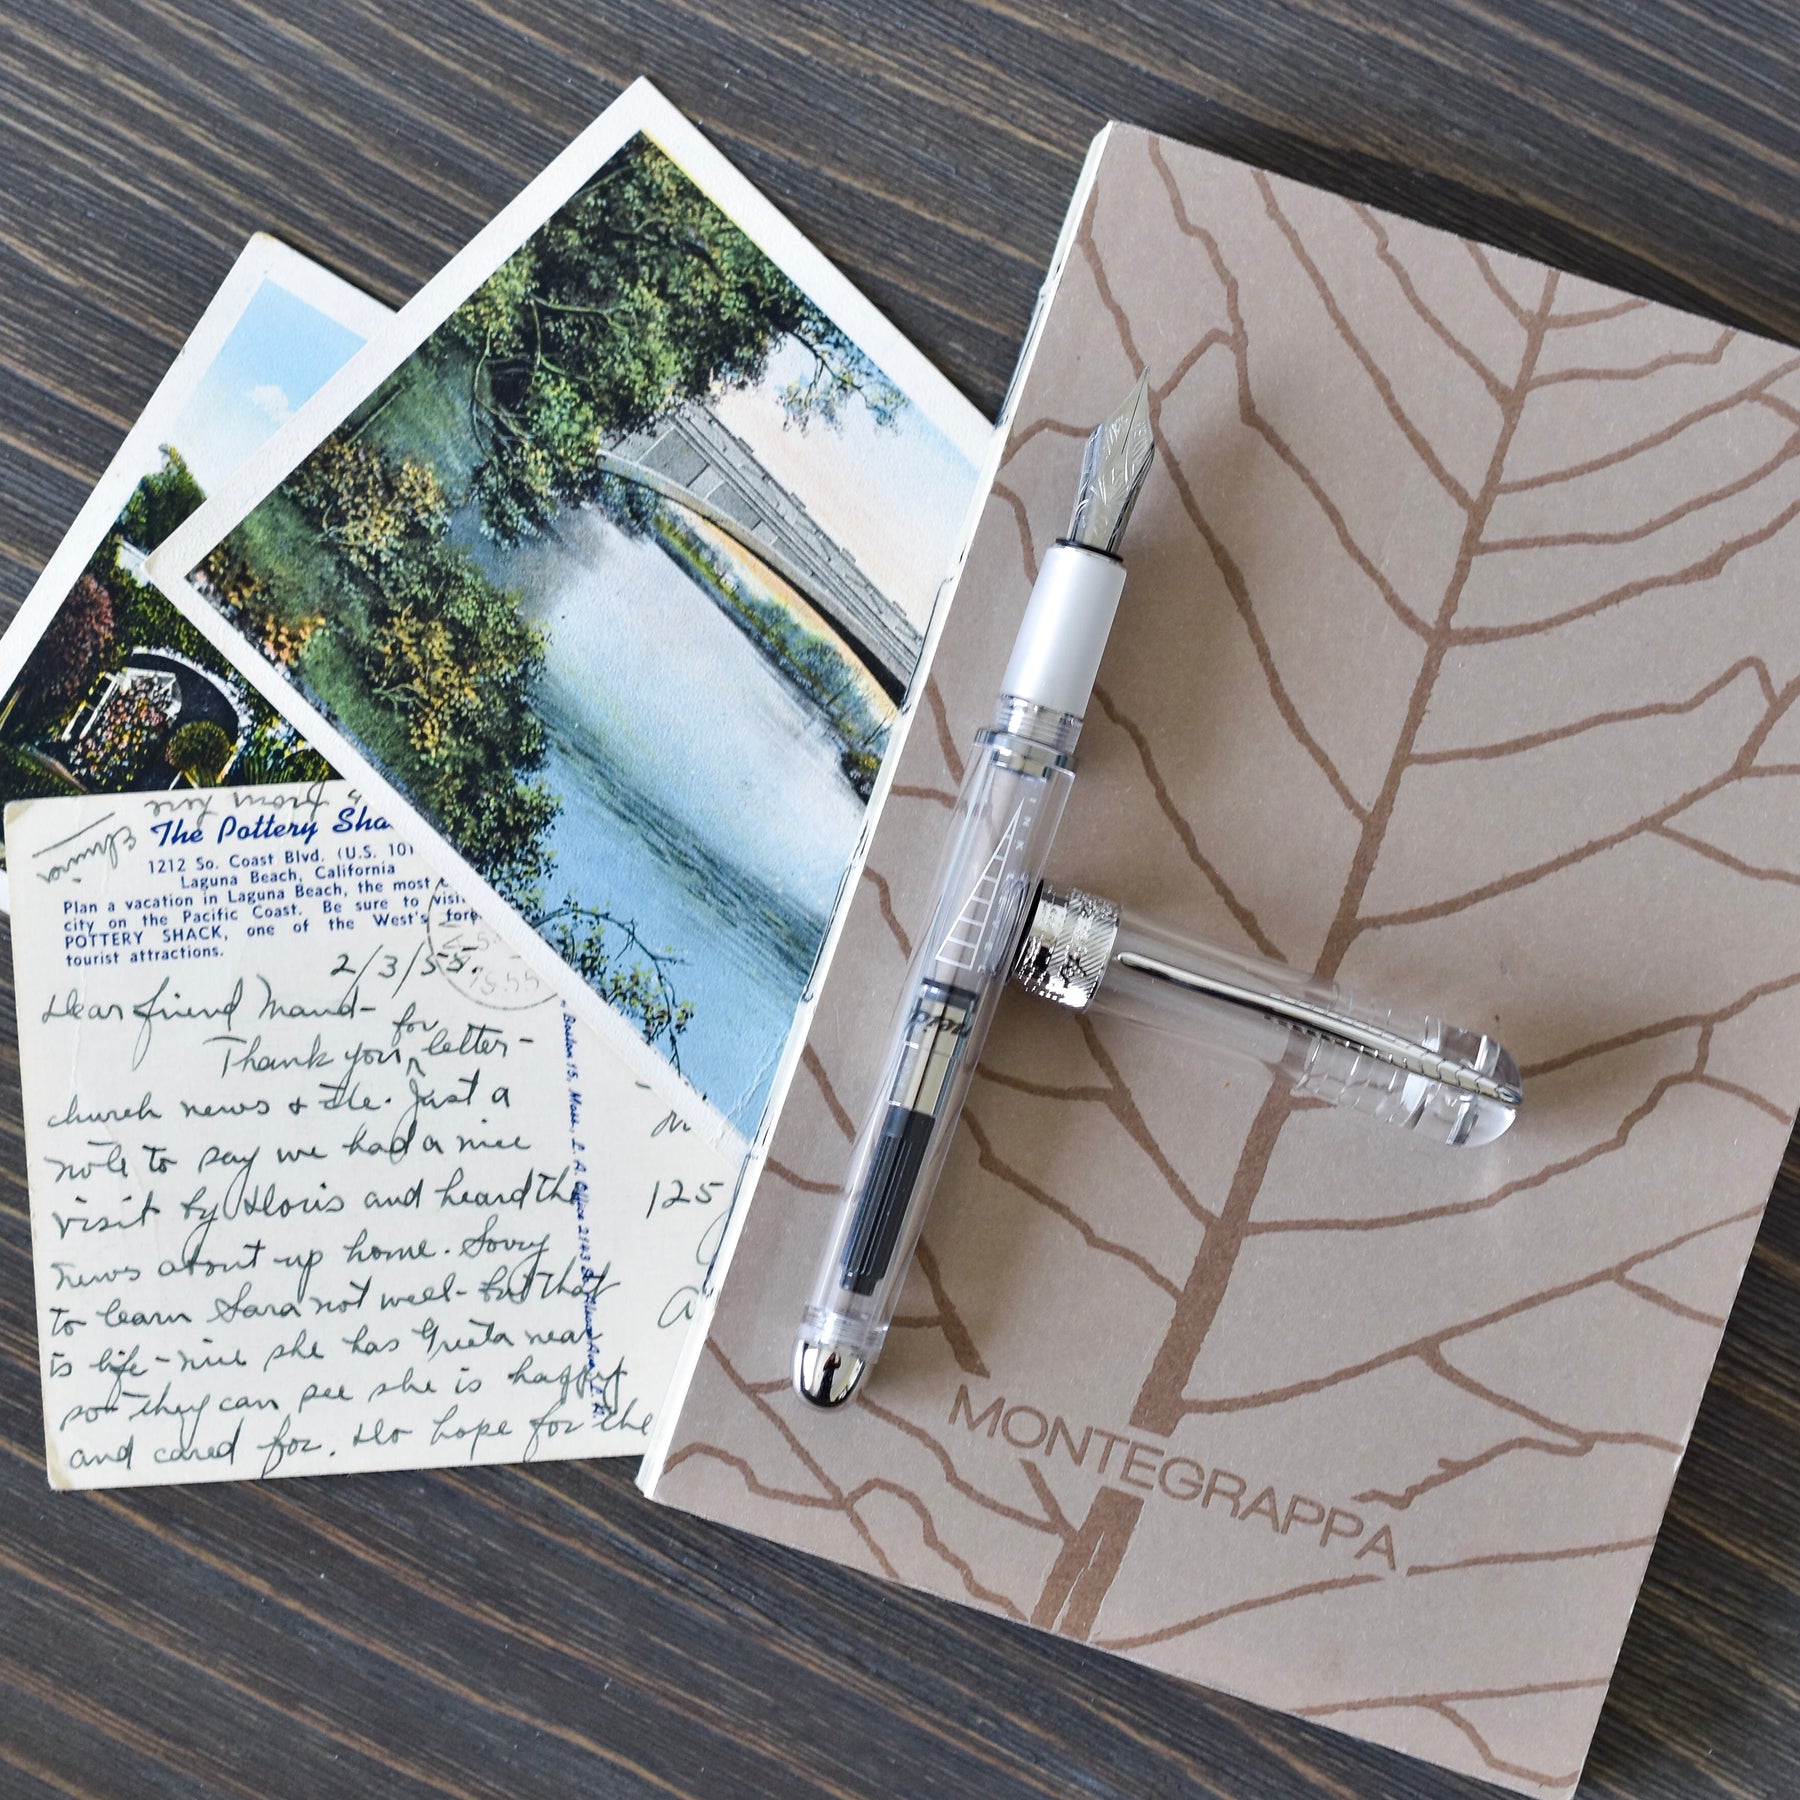 from
The Pottery Sha
1212 So. Coast Blvd. (U.S. 10)
Laguna Beach, California
Plan a vacation in Laguna Beach, the most
city on the Pacific Coast. Be sure to visi
POTTERY SHACK, one of the West's fore
tourist attractions.
2/3/55.
1955
Dear friend Maud-
Thank you for letter-
church news & etc. Just a
note to say we had a nice
visit by Doris and heard the
news about up home. Sorry
to learn Sara not well- but that
is life - nice she has Greta near
so they can see she is happy
and cared for. Do hope for the
Boston 15, Mass., L. A. Office 2143
125
INK
MONTEGRAPPA